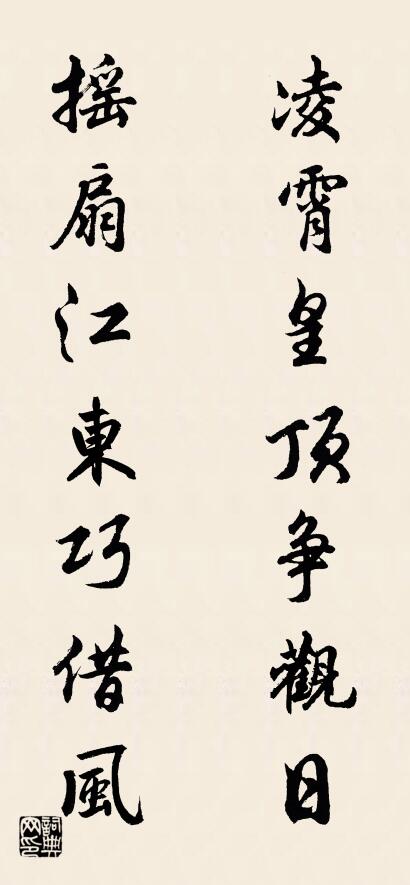 凌霄皇顶争觀日
摇扇江東巧借風
詞典网印